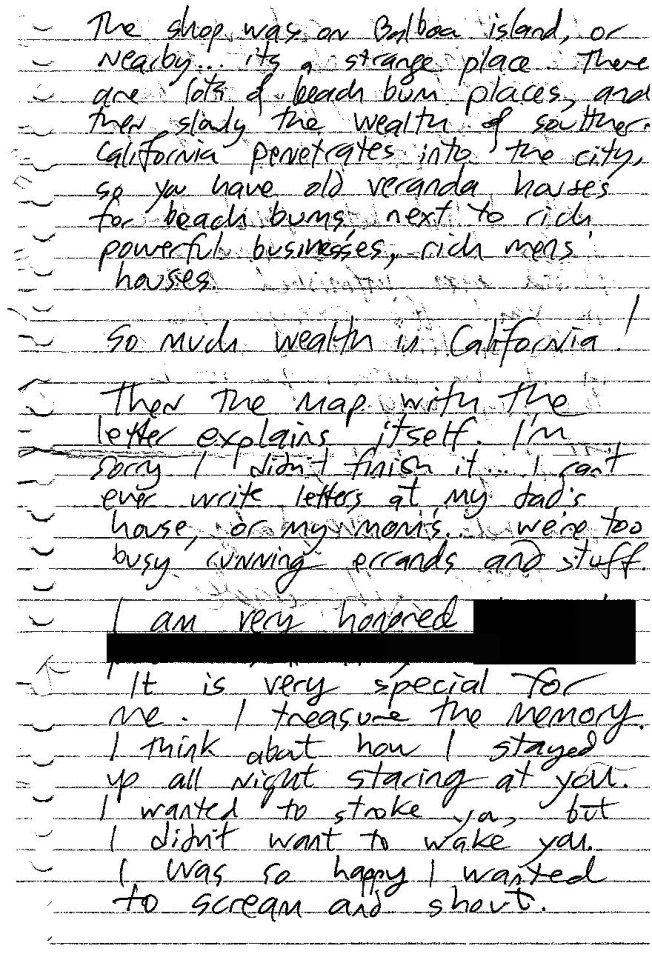 The shop was on Balboa island, or
Nearby... its a strange place. There
are lots of beach bum places, and
then slowly the wealth of souther
California penetrates into the city,
so you have old veranda houses
for beach bums, next to rich
powerful businesses, rich mens
houses.
So much wealth in California!
Then the map with the
letter explains itself. I'm
sorry I didn't finish it... I can't
ever write letters at my dad's
house, or my mom's... we're too
busy running errands and stuff.
I am very honored
It is very special for
me. I treasure the memory.
I think about how I stayed
up all night staring at you.
I wanted to stroke you, but
I didn't want to wake you.
I was so happy I wanted
to scream and shout.